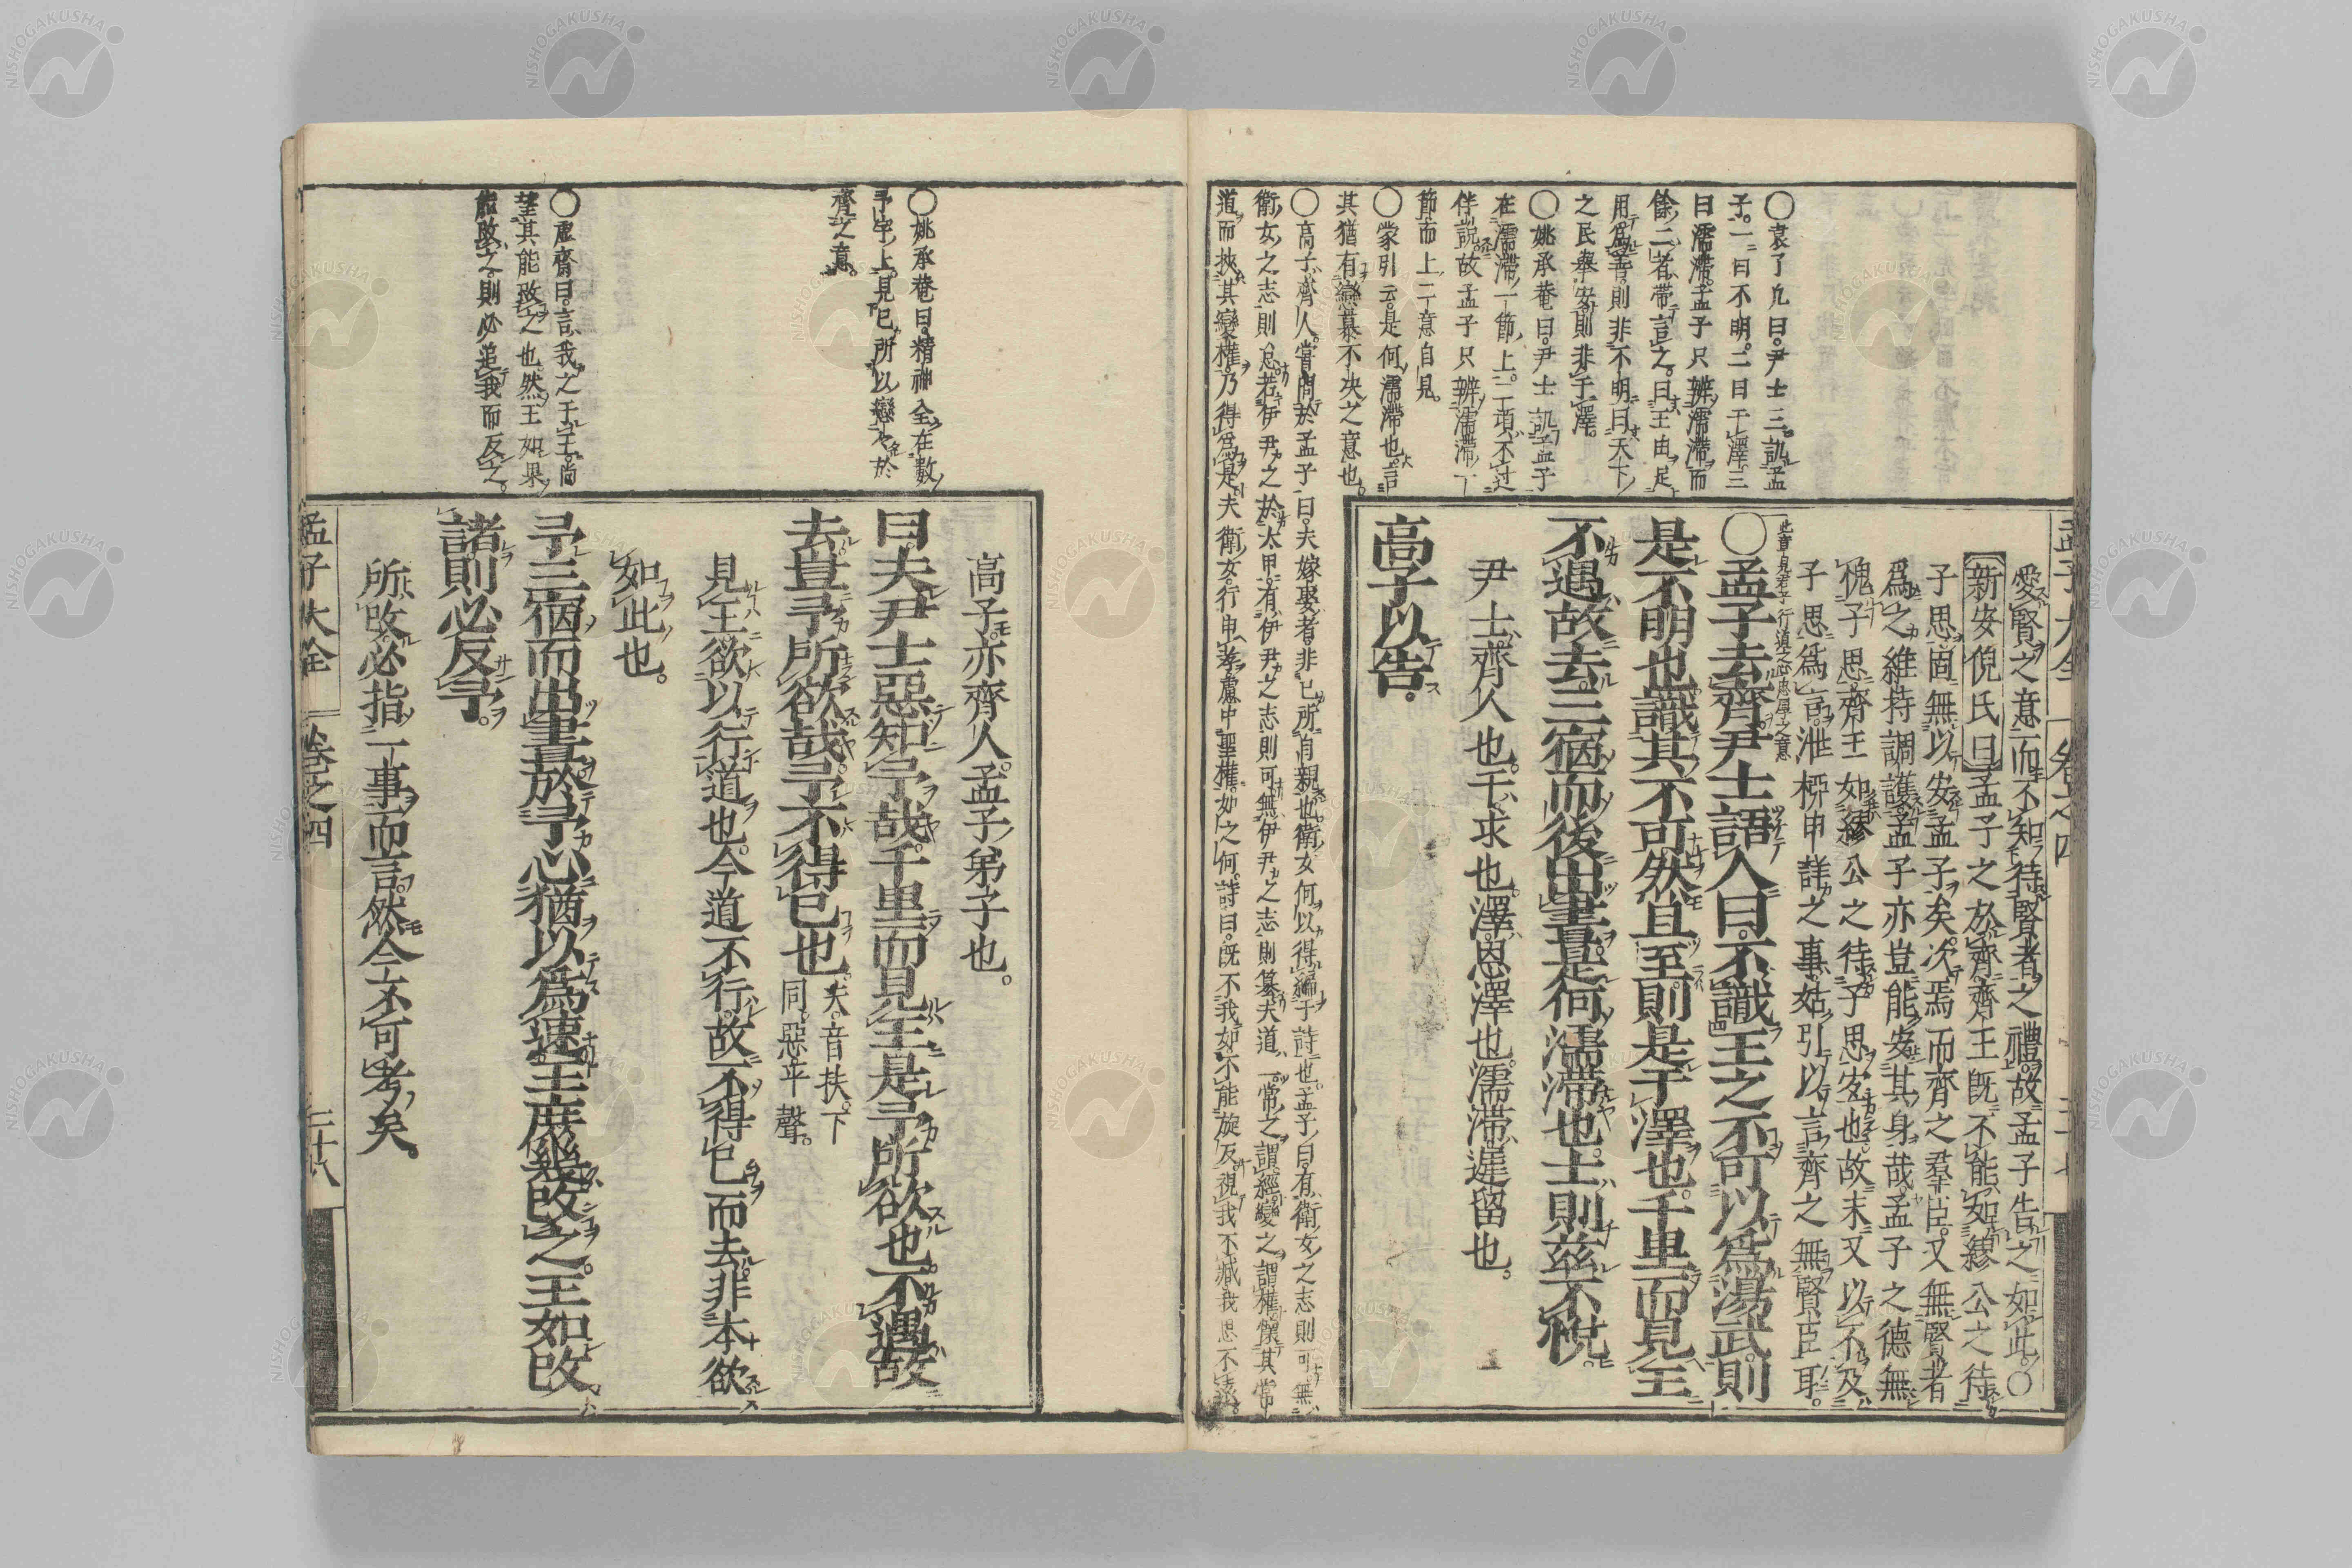 愛賢之意而不知待賢者之禮故孟子告之如此○
新安倪氏曰孟子之於齊齊王既不能如繆公之待
子思固無以安孟子矣次焉而齊之羣臣又無賢者
爲之維持調護孟子亦豈能安其身哉孟子之德無
愧子思齊王如繆公之待子思安也故末又以不及
子思爲言泄柳申詳之事姑引以言齊之無賢臣耳
此章見君子行道之心忠厚之意
○孟子去齊尹士語人曰不識王之不可以爲湯武則
是不明也識其不可然且至則是干澤也千里而見王
不遇故去三宿而後出晝是何濡滯也士則茲不悅
尹士齊人也干求也澤恩澤也濡滯遲留也
高子以告
○袁了凡曰尹士三譏孟
子一曰不明二曰干澤三
曰濡滯孟子只辨濡滯而
餘二者帶言之曰王由足
用爲善則非不明曰天下
之民舉安則非干澤
○姚承菴曰尹士譏孟子
在濡滯一節上二項不过
伴説故孟子只辨濡滯一
節而上二意自見
○蒙引云是何濡滯也言
其猶有戀慕不决之意也
○高子齊人嘗問於孟子曰夫嫁娶者非己所自親也衛女何以得編于詩也孟子曰有衛女之志則可無
衛女之志則怠若伊尹之於太甲有伊尹之志則可無伊尹之志則篡夫道一常之謂經變之謂權懷其常
道而挾其變權乃得爲是夫衛女行中孝慮中聖權如之何詩曰既不我如不能旋反視我不臧我思不遠
高子亦齊人孟子弟子也
曰夫尹士惡知予哉千里而見王是予所欲也不遇故
去豈予所欲哉予不得已也夫音扶下
同惡平聲
見王欲以行道也今道不行故不得已而去非本欲
如此也
予三宿而出晝於予心猶以爲速王庶幾改之王如改
諸則必反予
所改必指一事而言然今不可考矣
孟子大全 卷之四 二十八
○姚承菴曰精神全在數
予字上見已所以戀々於
齊之意
○虛齊曰言我之于王尚
望其能改之也然王如果
能改之則必追我而反之